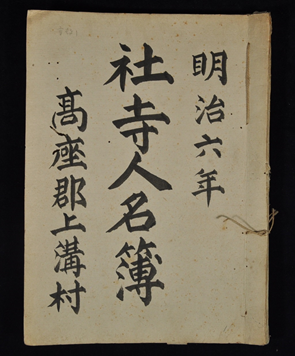 明治六年
社寺人名簿
髙座郡上溝村